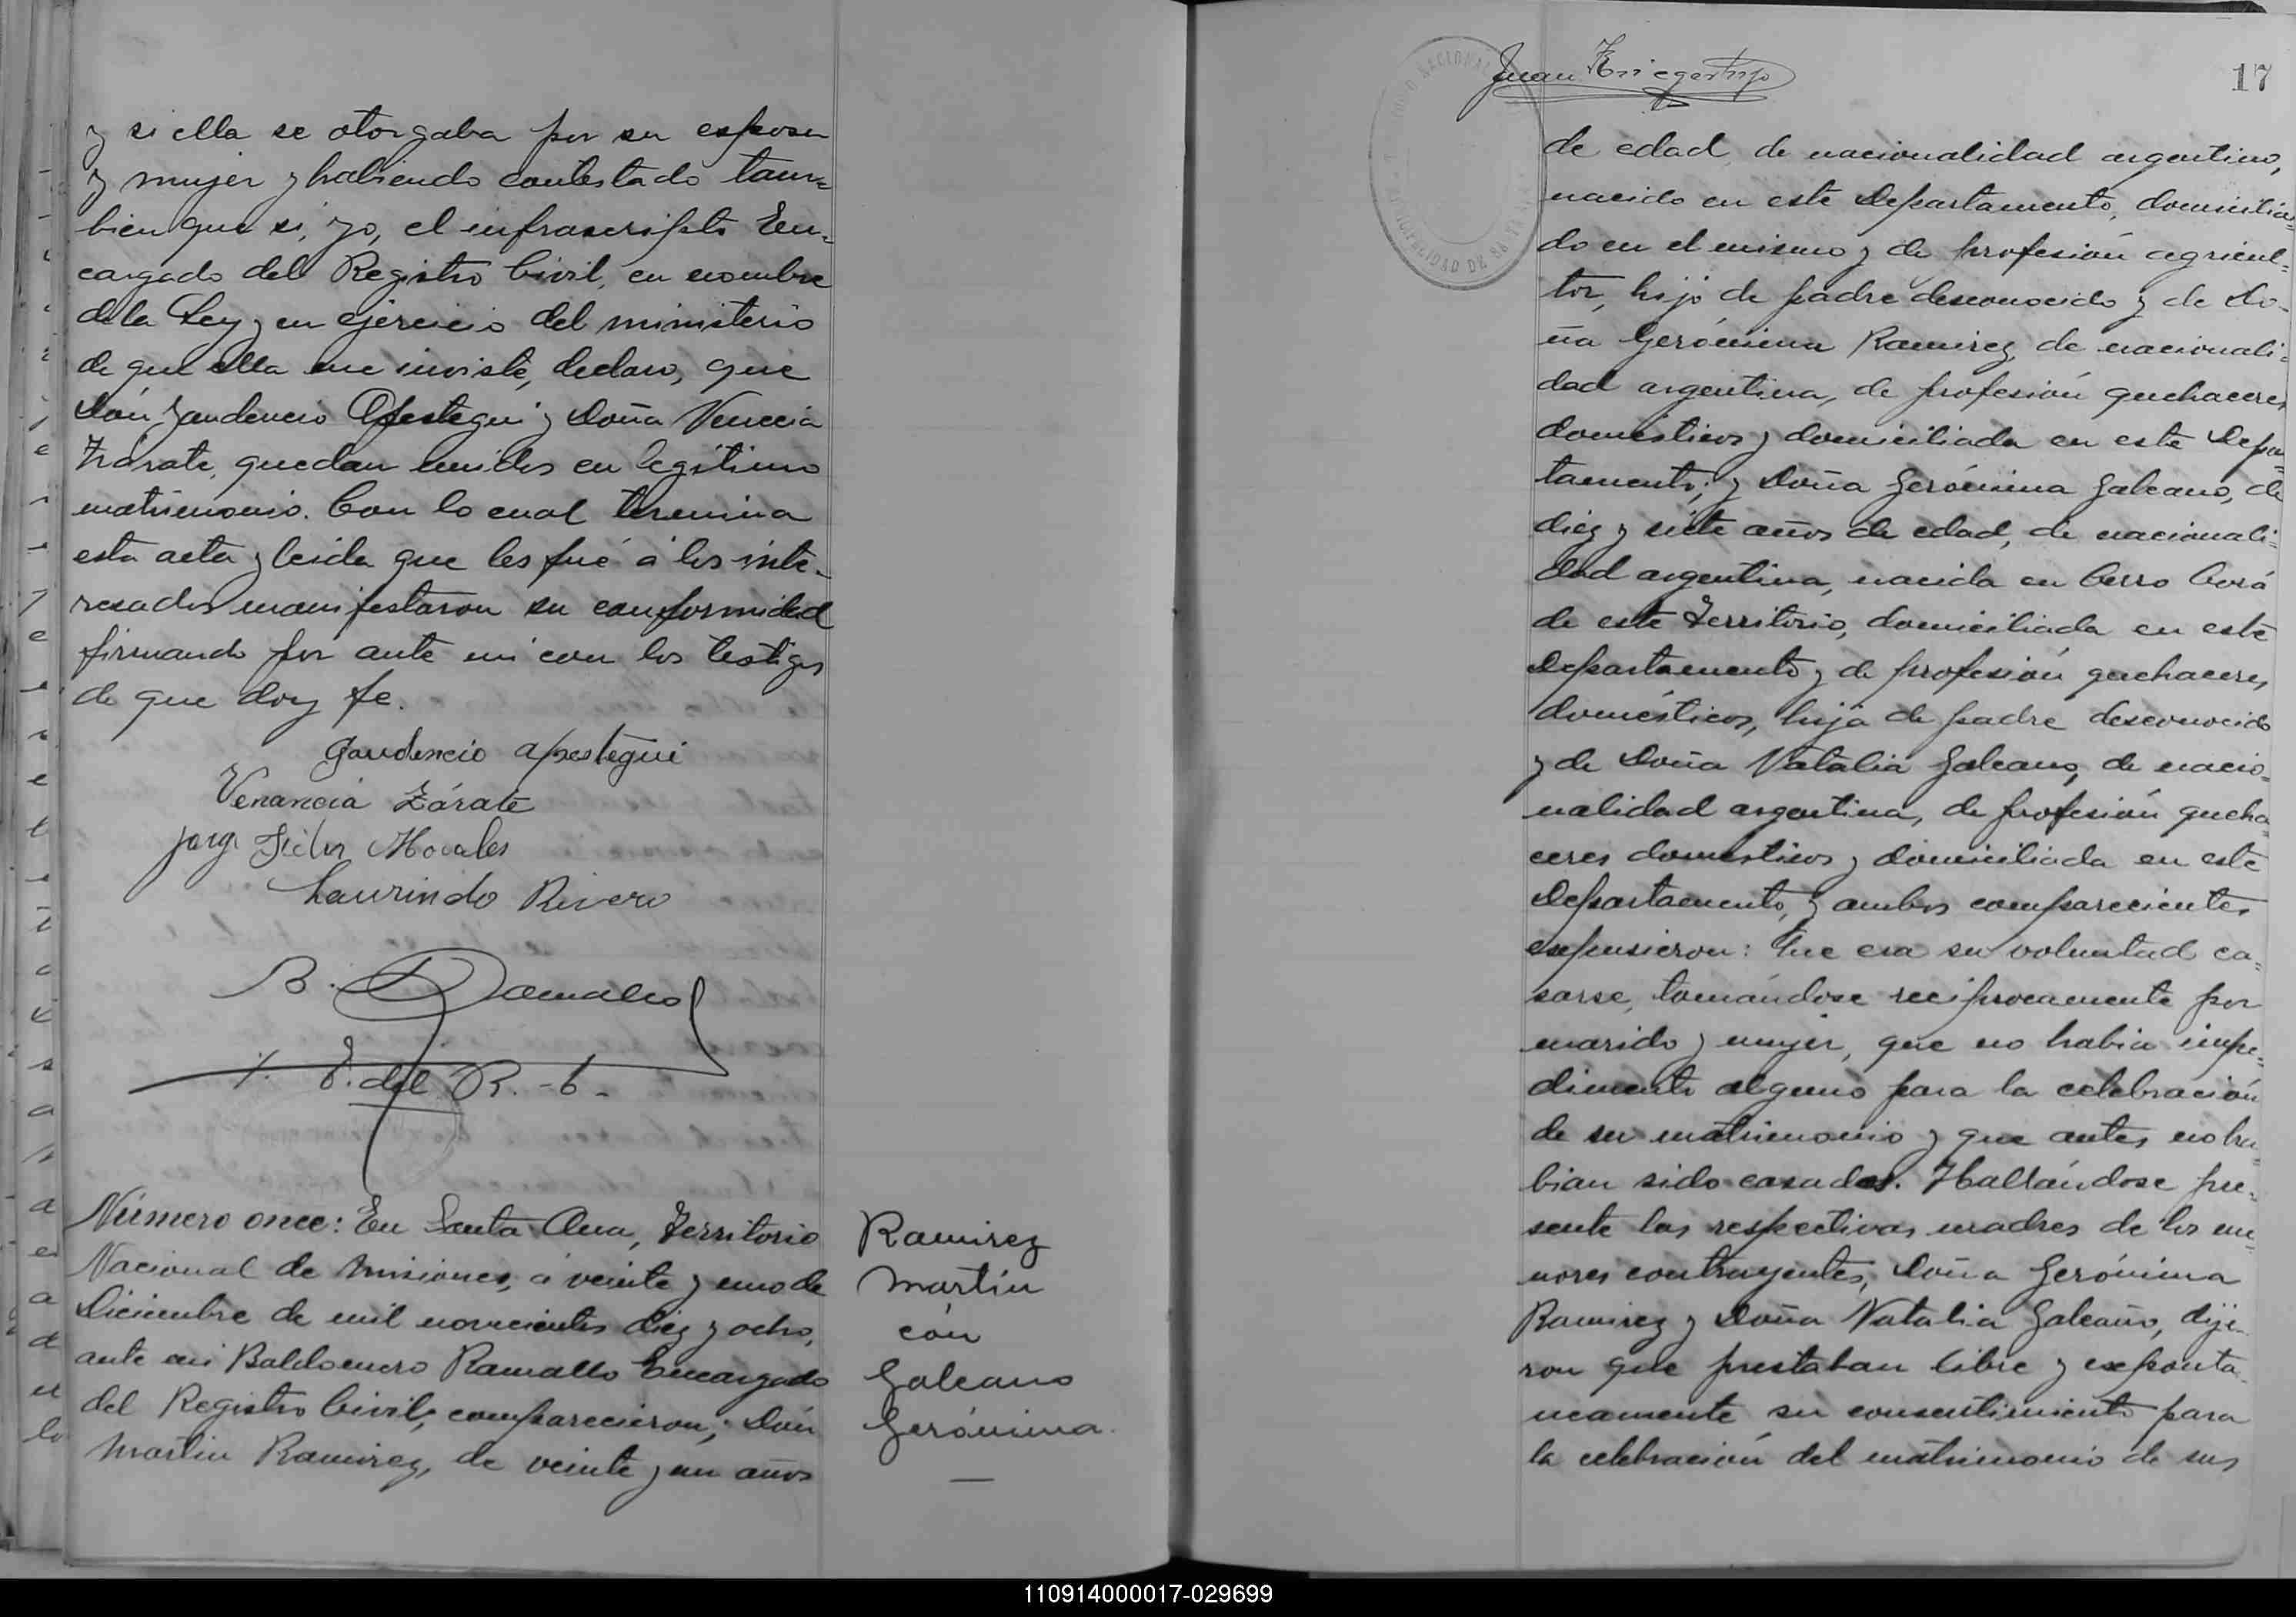 y si ella se otorgaba por su esposa
y mujer y habiendo contestado tam=
bien que si, yo, el infrascripto En=
cargado del Registro Civil, en nombre
de la Ley y en ejercicio del ministerio
de que ella me inviste, declaro, que
Dón Gaudencio Apestegui y Doña Venecia
Zárate, quedan unidos en legítimo
matrimonio. Con lo cual termina
esta acta y leida que les fué á los inte-
resados manifestaron su conformidad
firmando por ante mi con los testigos
de que doy fe.
Gaudencio apestegui
Venancia Zárate
Jorge Morales
Laurindo Rivero
B. Ramallo
E. del R. C.
Número once: En Santa Ana, Territorio
Nacional de Misiones, á veinte y uno de
Diciembre de mil novecientos diez y ocho,
ante mi Baldomero Ramallo Encargado
del Registro Civil; comparecieron; Dón
Martin Ramirez, de veinte y un años
Ramirez
Martín
cón
Galeano
Gerónima.
Juan
17
de edad, de nacionalidad argentino,
nacido en este Departamento, domicilia=
do en el mismo y de profesión agricul=
tor, hijo de padre desconocido y de Do-
ña Gerónima Ramirez, de nacionali=
dad argentina, de profesión quehaceres
domésticos y domiciliada en este Depar
tamento; y Doña Gerónima Galeano, de
diez y siete años de edad, de nacionali=
dad argentina, nacida en Cerro Corá
de este Territorio, domiciliada en este
Departamento y de profesión quehaceres
domésticos, hija de padre desconocido
y de Doña Natalia Galeano, de nacio=
nalidad argentina, de profesión queha
ceres domésticos y domiciliada en este
Departamento, y ambos comparecientes
expusieron: Que era su voluntad ca=
sarse, tomándose reciprocamente por
marido y mujer, que no habia impe=
dimento alguno para la celebración
de su matrimonio y que antes no ha=
bian sido casados. Hallándose pre=
sente las respectivas madres de los me=
nores contrayentes, Doña Gerónima
Ramirez y Doña Natalia Galeano, dije-
ron que prestaban libre y exponta-
neamente su consentimiento para
la celebración del matrimonio de sus
110914000017-029699